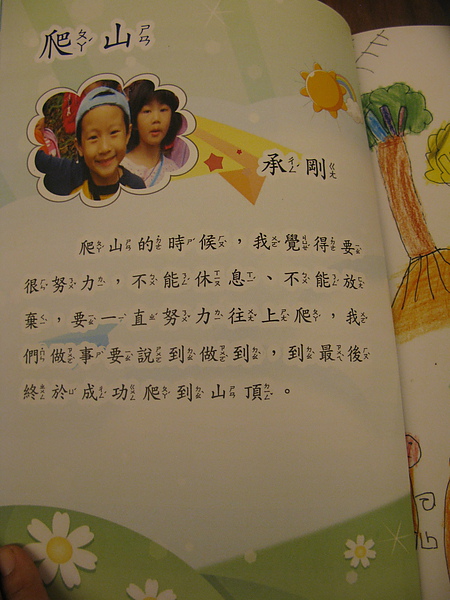 爬山
承剛
爬山的時候，我覺得要
很努力，不能休息、不能放
棄，要一直努力往上爬，我
們做事要說到做到，到最後
終於成功爬到山頂。